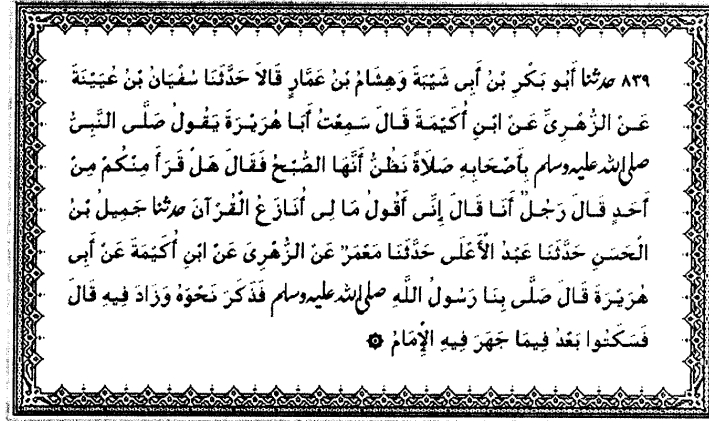 ٨٣٩ حدثنا أَبُو بَكْرِ بْنُ أَبِى شَيْبَةَ وَهِشَامُ بْنُ عَمَّارٍ قَالَا حَدَّثَنَا سُفْيَانُ بْنُ عُيَيْنَةَ
عَنِ الزُّهْرِىِّ عَنِ ابْنِ أُكَيْمَةَ قَالَ سَمِعْتُ أَبَا هُرَيْرَةَ يَقُولُ صَلَّى النَّبِىُّ
صلى الله عليه وسلم بِأَصْحَابِهِ صَلَاةً نَظُنُّ أَنَّهَا الصُّبْحُ فَقَالَ هَلْ قَرَأَ مِنْكُمْ مِنْ
أَحَدٍ قَالَ رَجُلٌ أَنَا قَالَ إِنِّى أَقُولُ مَا لِى أُنَازَعُ الْقُرْآنَ حدثنا جَمِيلُ بْنُ
الْحَسَنِ حَدَّثَنَا عَبْدُ الْأَعْلَى حَدَّثَنَا مَعْمَرٌ عَنِ الزُّهْرِىِّ عَنِ ابْنِ أُكَيْمَةَ عَنْ أَبِى
هُرَيْرَةَ قَالَ صَلَّى بِنَا رَسُولُ اللَّهِ صلى الله عليه وسلم فَذَكَرَ نَحْوَهُ وَزَادَ فِيهِ قَالَ
فَسَكَتُوا بَعْدُ فِيمَا جَهَرَ فِيهِ الْإِمَامُ